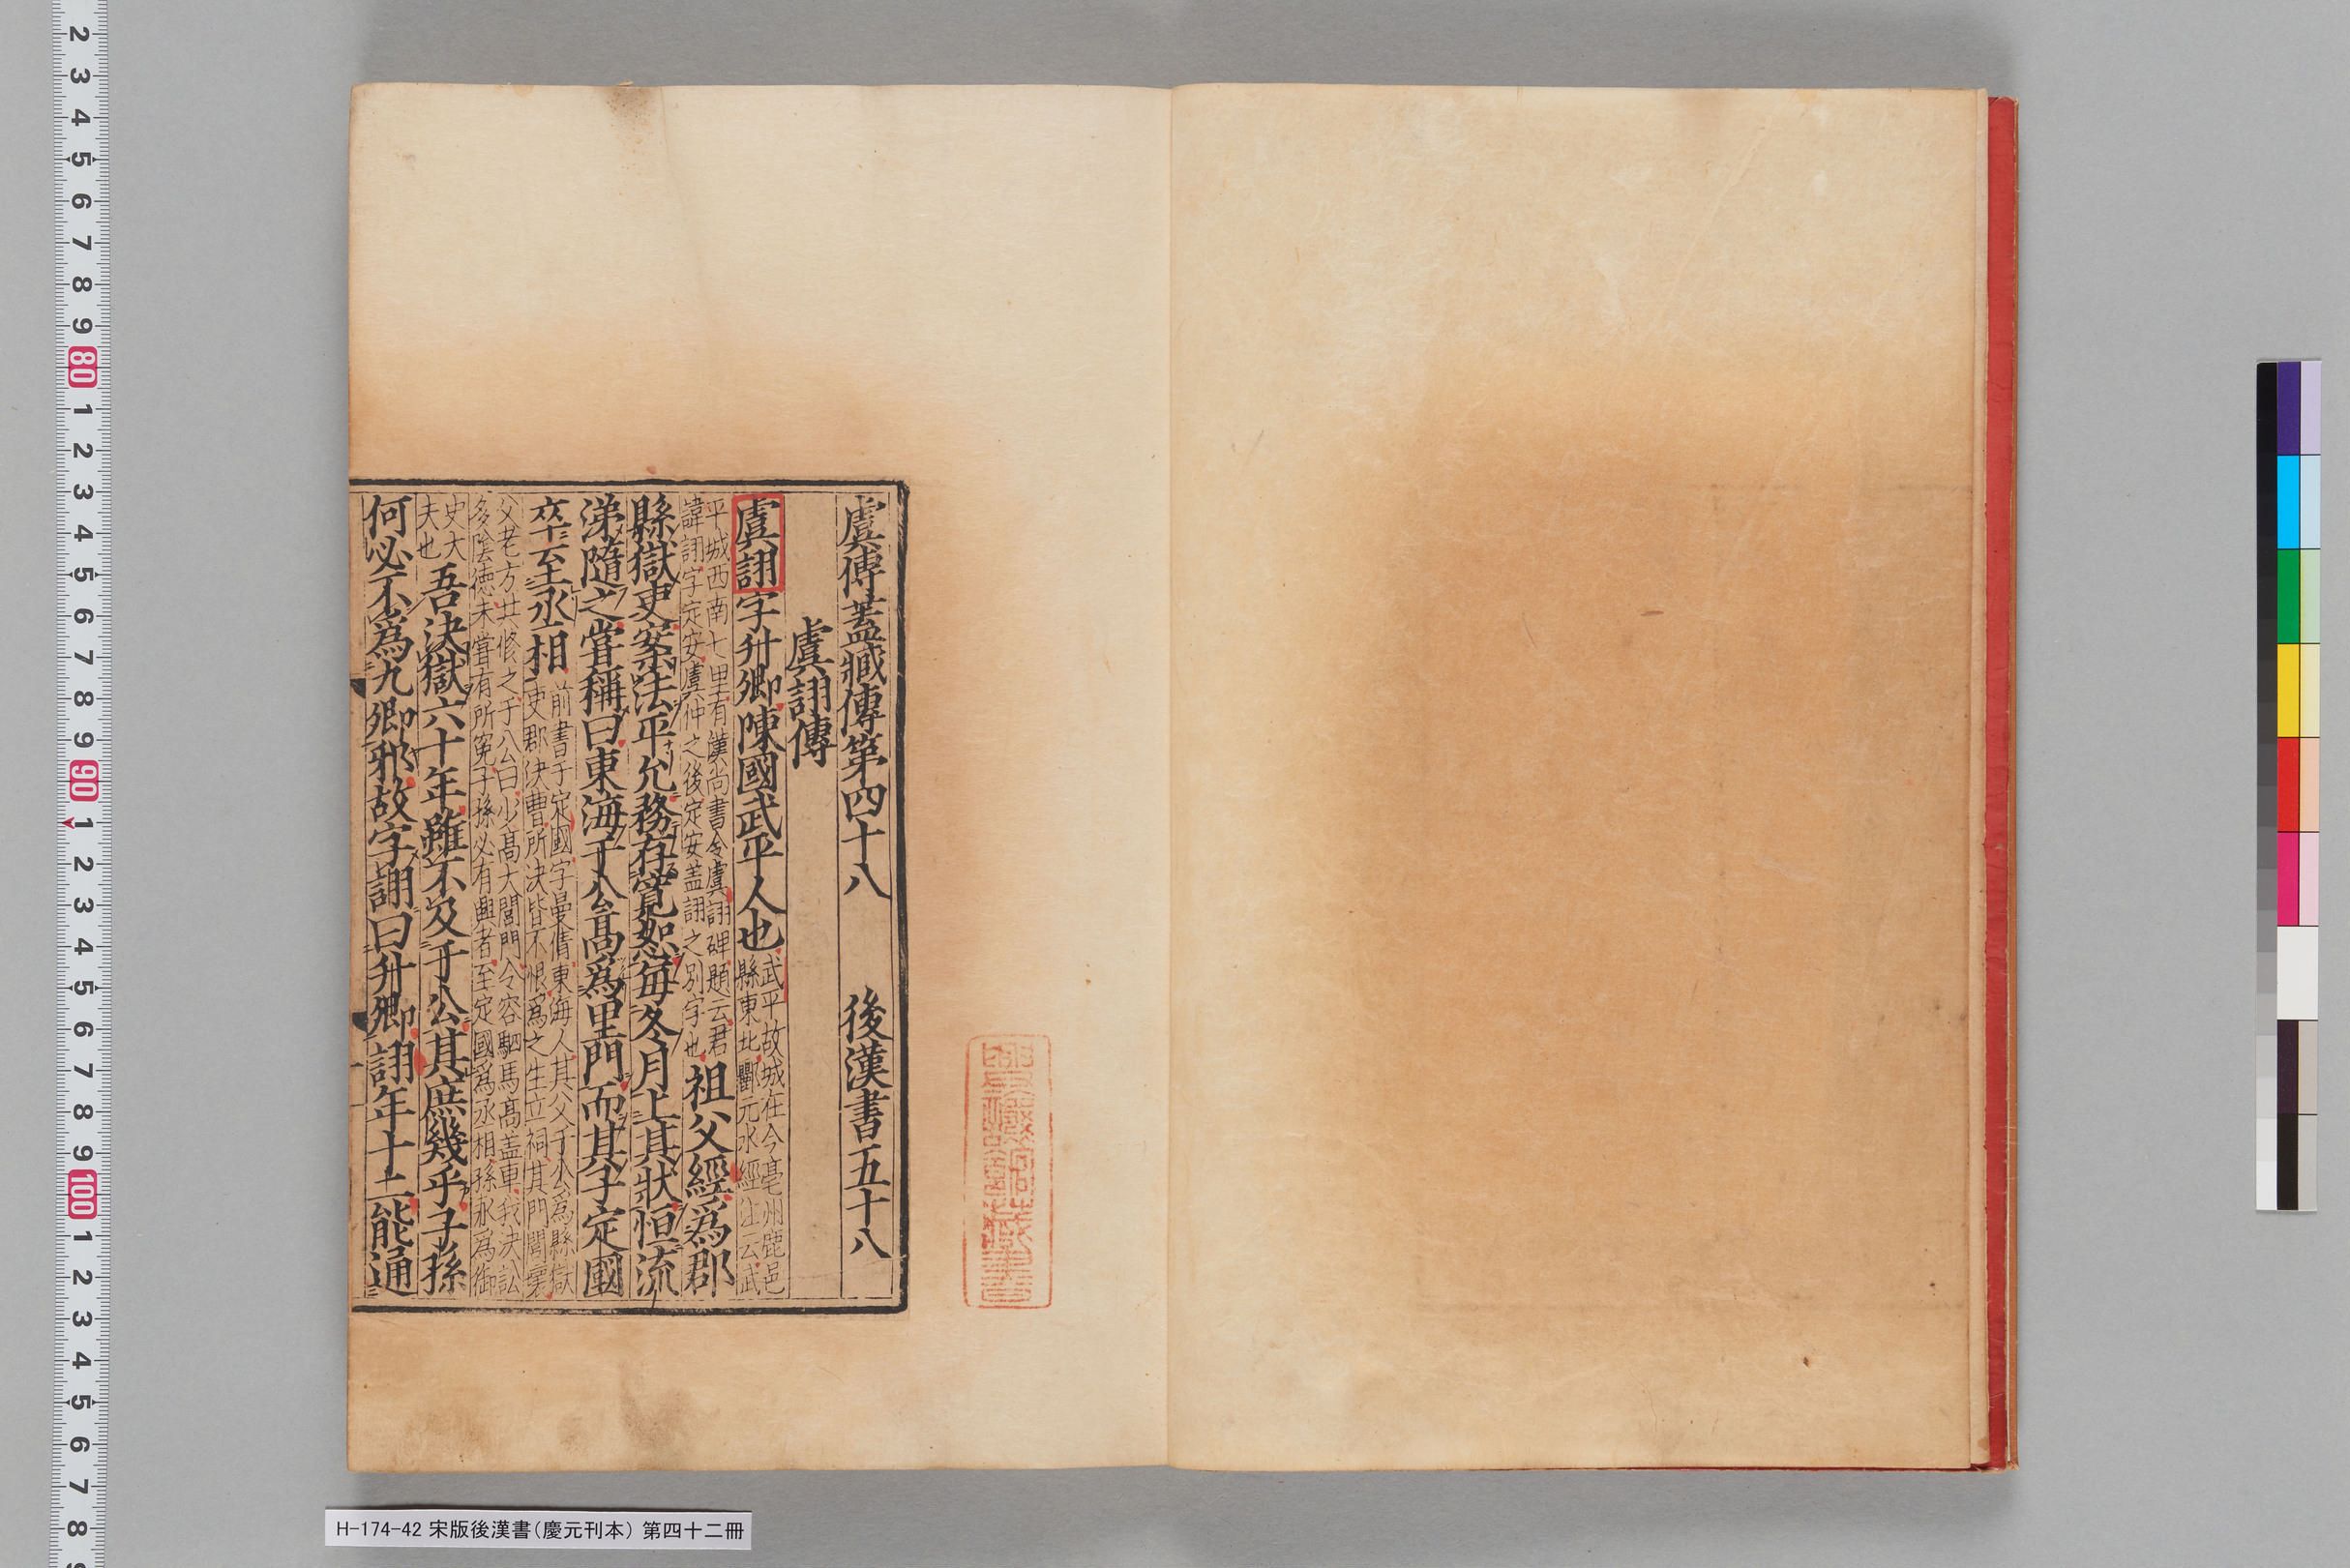 虞傅蓋臧傳第四十八　後漢書五十八
虞詡傳
虞詡字升卿陳國武平人也武平故城在今亳州鹿邑
縣東北酈元水經注云武
平城西南七里有漢尚書令虞詡碑題云君
諱詡字定安虞仲之後定安盖詡之別字也祖父經爲郡
縣獄吏案法平允務存寬恕每冬月上其狀恒流
涕隨之甞稱曰東海于公髙爲里門而其子定國
卒至丞相前書于定國字曼倩東海人其父于公爲縣獄
吏郡決曹所決皆不恨爲之生立祠其門閭壞
父老方共修之于公曰少髙大閭門令容駟馬髙盖車我決訟
多陰德未甞有所寃子孫必有興者至定國爲丞相孫永爲御
史大
夫也吾決獄六十年雖不及于公其庶幾乎子孫
何必不爲九卿邪故字詡曰升卿詡年十二能通
H-174-42 宋版後漢書（慶元刊本） 第四十二冊
2
3
4
5
6
7
8
9
80
1
2
3
4
5
6
7
8
9
90
1
2
3
4
5
6
7
8
9
100
1
2
3
4
5
6
7
8